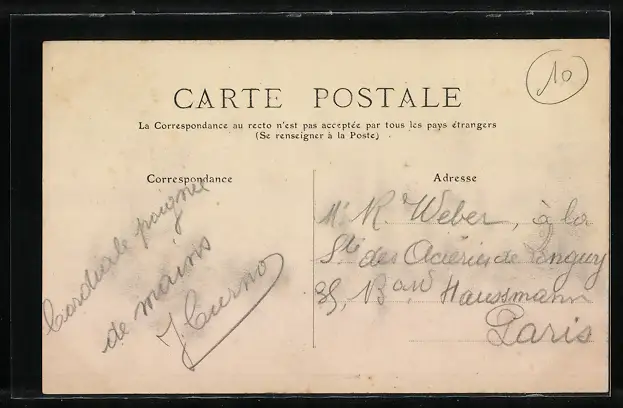 10
CARTE POSTALE
La Correspondance au recto n'est pas acceptée par tous les pays étrangers
(Se renseigner à la Poste)
Correspondance
Adresse
Cordiale poignée
de mains
Mr R. Weber, à la
Sté des Aciéries de Longwy
Bard Haussmann
Paris